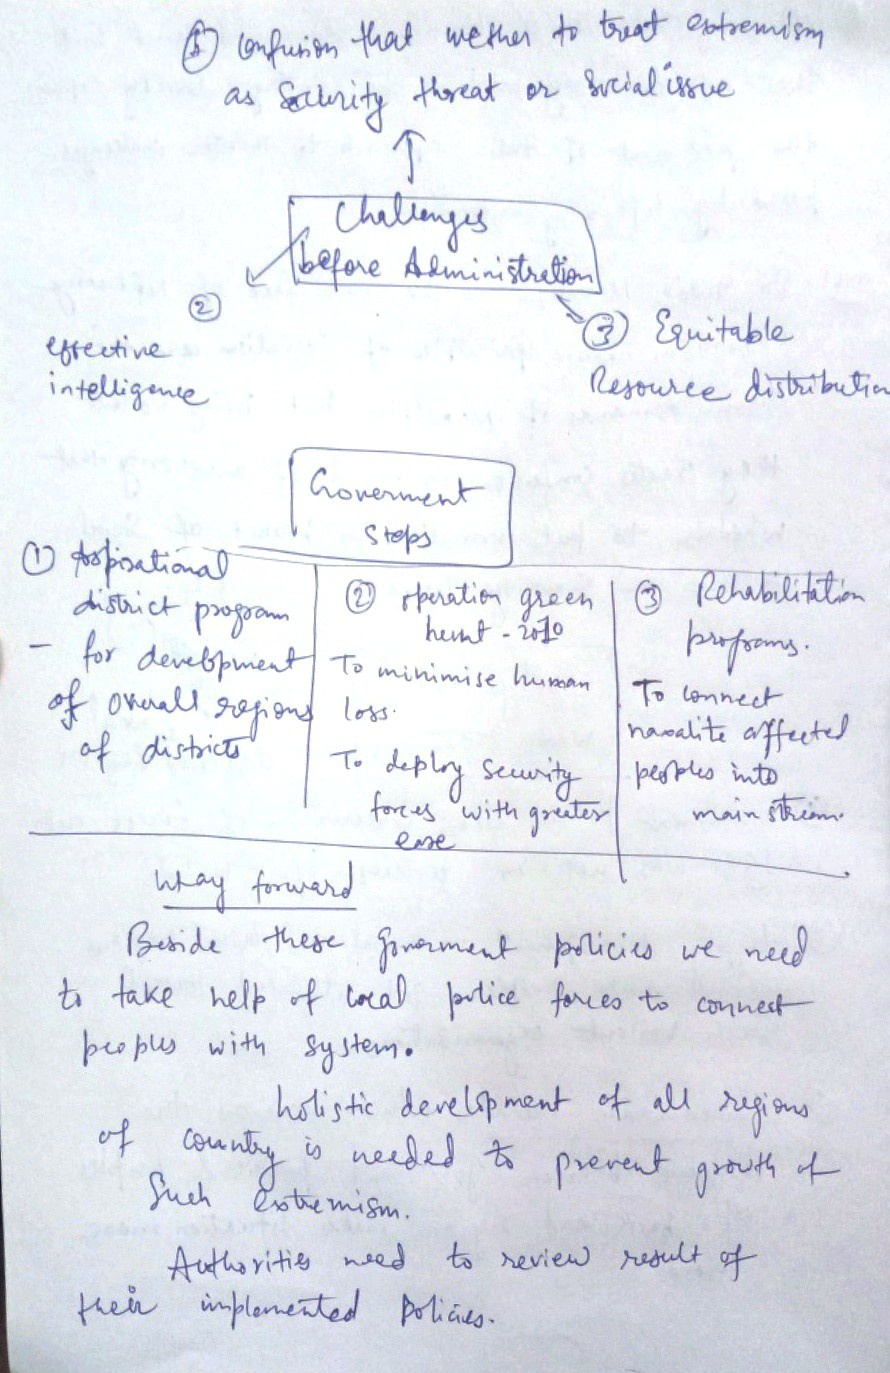 ① Confusion that wether to treat extremism
as Security threat or Social issue
Challenges
before Administration
②
effective
intelligence
③ Equitable
Resource distribution
Goverment
Steps
① Aspirational
district program
- for development
of overall regions
of districts
② operation green
hunt - 2010
To minimise human
loss.
To deploy security
forces with greater
ease
③ Rehabilitation
programs.
To connect
naxalite affected
peoples into
main stream.
Way forward
Beside these government policies we need
to take help of local police forces to connect
peoples with system.
holistic development of all regions
of country is needed to prevent growth of
Such extremism.
Authorities need to review result of
their implemented policies.